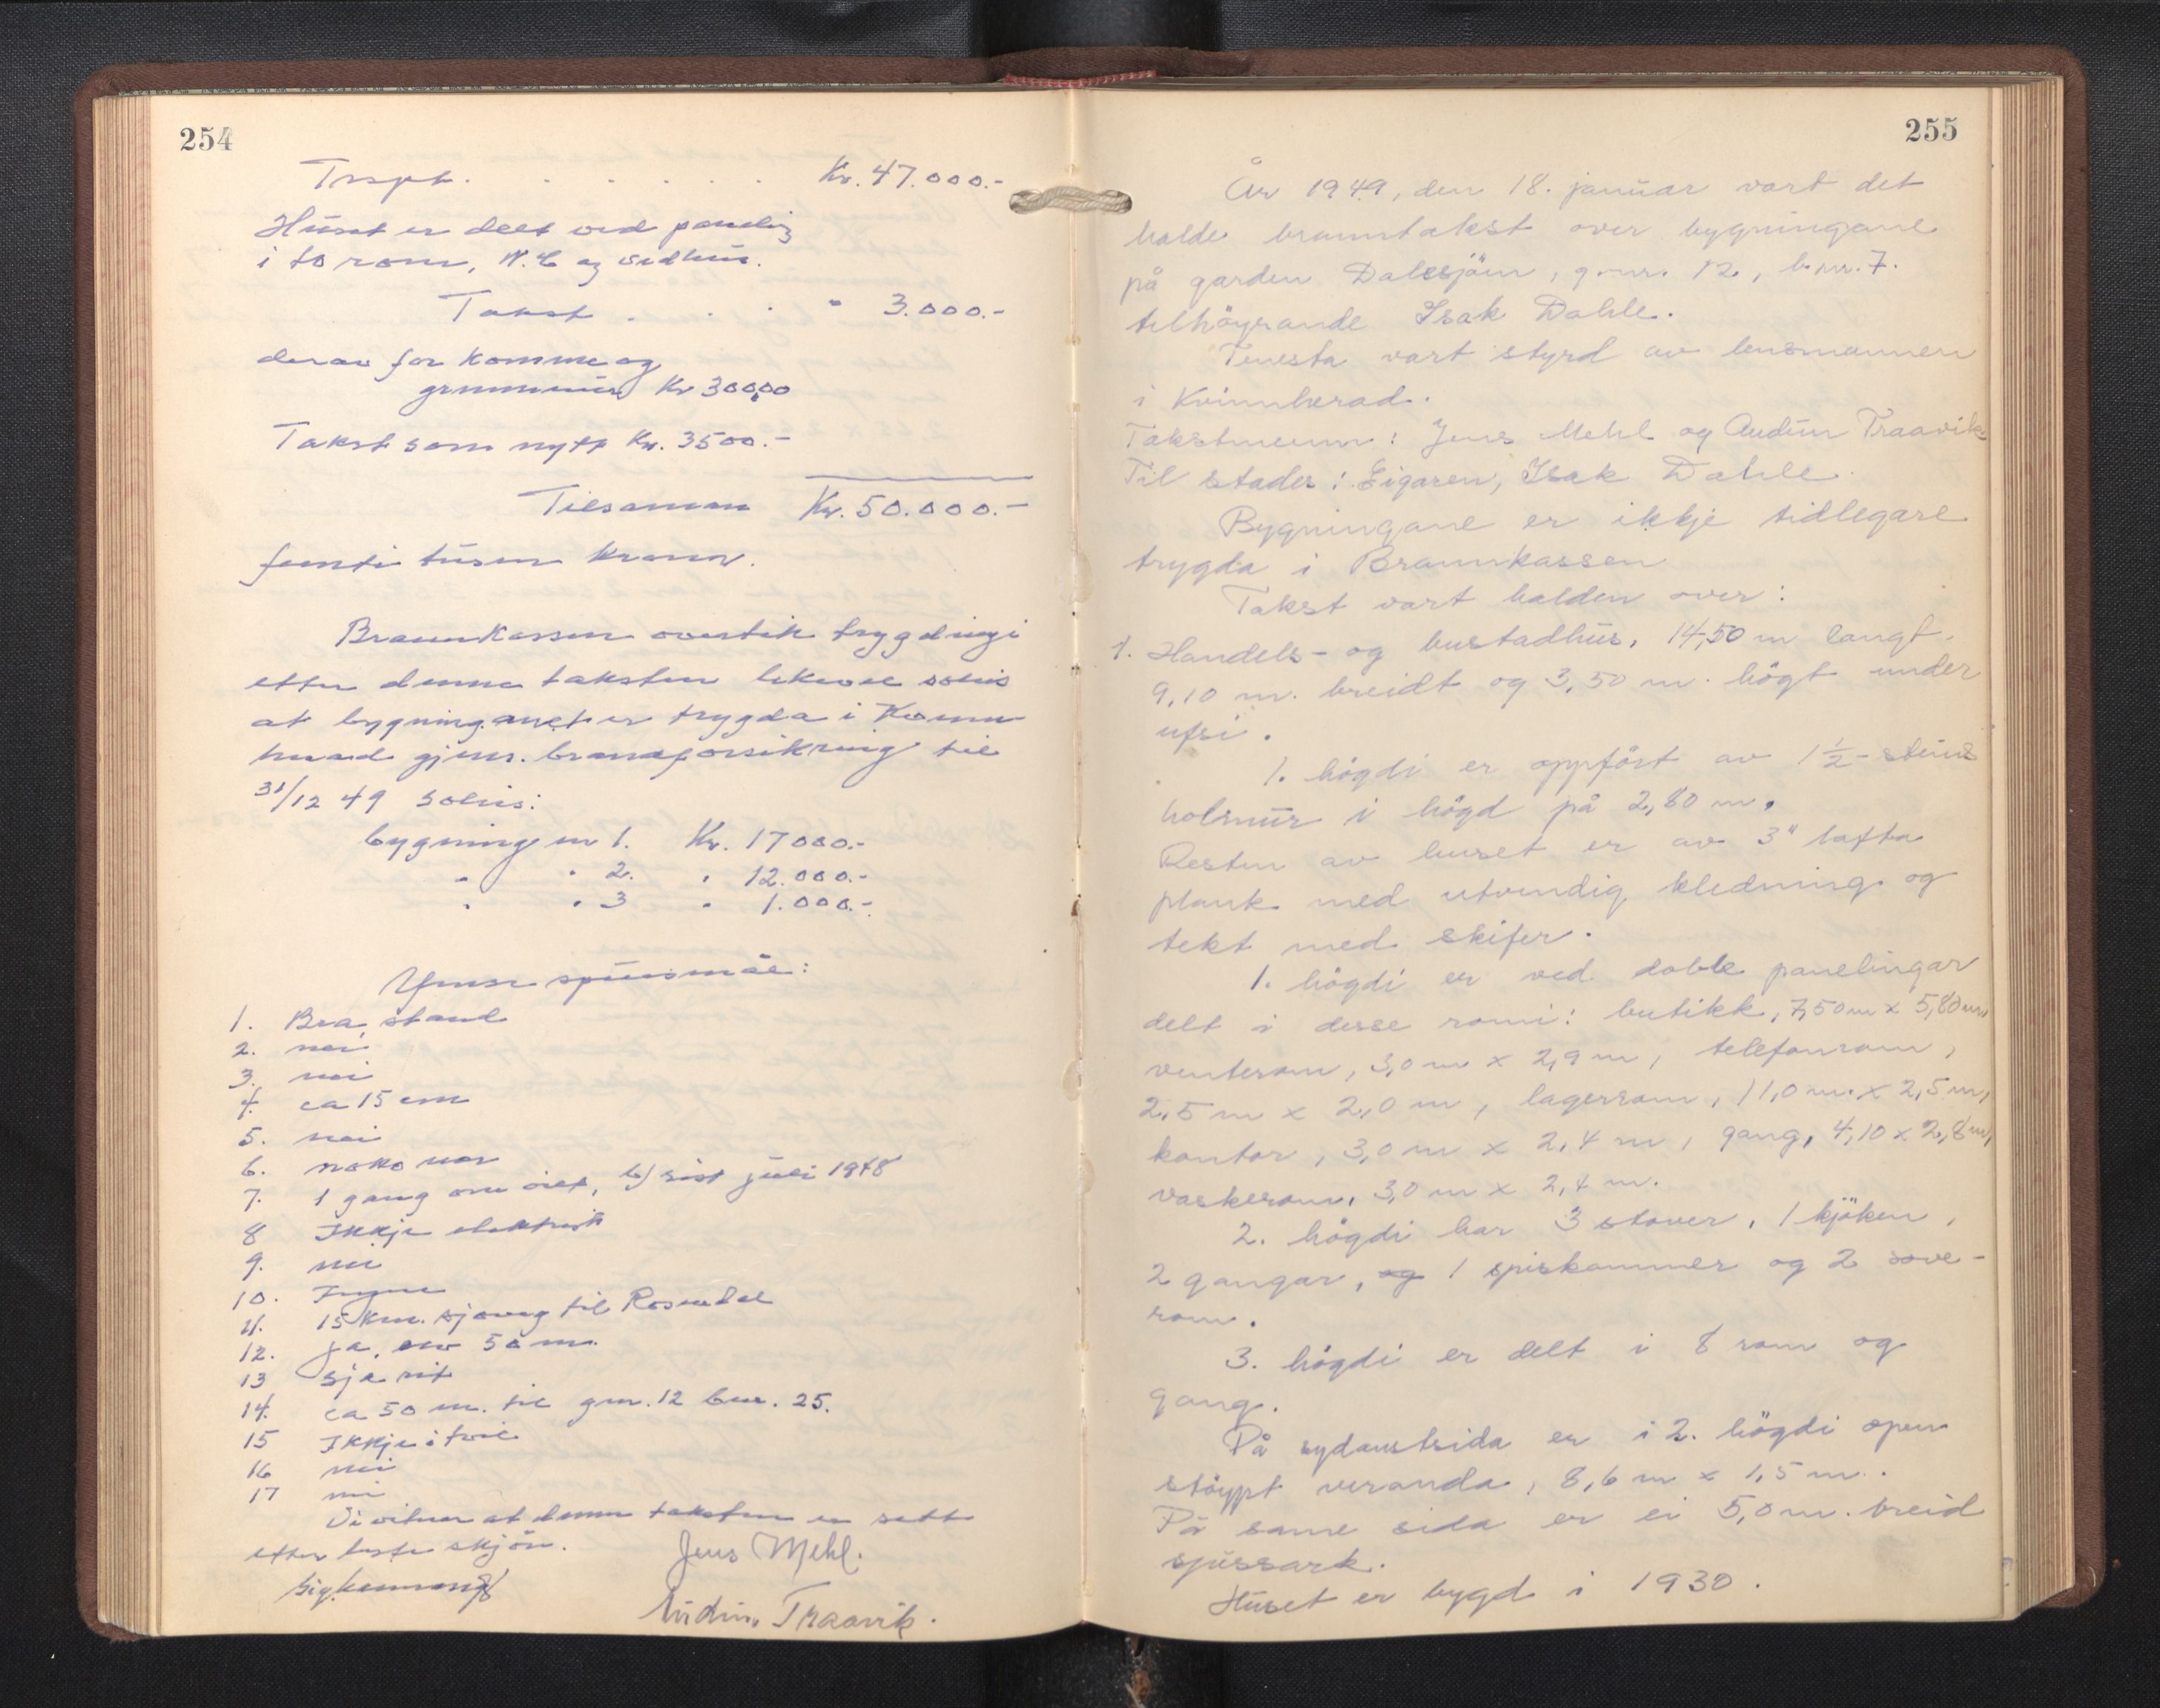 254
Trspt. . . . . . . Kr. 47.000.-
Huset er delt ved paneling
i to rom, W.C og vedhus.
Takst . . . " 3.000.-
derav for komme og
grunnmur Kr 300,00
Takst som nytt Kr. 3500.-
Tilsaman Kr. 50.000.-
femti tusen kroner.
Brannkassen overtek trygdingi
etter denne taksten likevel solis
at bygningane er trygda i Kvinn-
herad gjens. brandforsikring til
31/12 49 solis:
bygning nr 1. Kr. 17000.-
" " 2. " 12.000.-
" " 3 " 1.000.-
Ymse spursmål:
1. Bra stand
2. nei
3. nei
4. ca 15 cm
5. nei
6. noko nær
7. 1 gang om året, b) sist juli 1948
8 Ikkje elektrisk
9. nei
10. Ingen
11. 15 km. sjøveg til Rosendal
12. ja, ca 50 m.
13 sjå rit
14. ca 50 m. til gnr. 12 bnr. 25.
15 Ikkje i tvil
16 nei
17 nei
Vi vitnar at denne taksten er sett
etter beste skjön.
Jens Mehl.
Audun Traavik.
255
År 1949, den 18. januar vart det
halde branntakst over bygningane
på garden Dalesjöen, g.nr. 12, b.nr. 7.
tilhöyrande Isak Dahle.
Tenesta vart styrd av lensmannen
i Kvinnherad.
Takstmenn: Jens Mehl og Audun Traavik
Til stades: Eigaren, Isak Dahle.
Bygningane er ikkje tidlegare
trygda i Brannkassen
Takst vart halden over:
1. Handels- og bustadhus, 14,50 m langt.
9,10 m. breidt og 3,50 m. högt under
ufsi.
1. högdi er oppfört av 1 1/2-steins
holmur i högd på 2,80 m.
Resten av huset er av 3" lafta
plank med utvendig kledning og
tekt med skifer.
1. högdi er ved doble panelingar
delt i desse romi: butikk, 7,50 m x 5,80 m,
venterom, 3,0 m x 2,9 m, telefonrom,
2,5 m x 2,0 m, lagerrom, 11,0 m. x 2,5 m,
kontor, 3,0 m x 2,4 m, gang, 4,10 x 2,8 m,
vaskerom, 3,0 m x 2,4 m.
2. högdi har 3 stover, 1 kjöken,
2 gangar, og 1 spiskammer og 2 sove-
rom.
3. högdi er delt i 8 rom og
gang.
På sydaustsida er i 2. högdi open
stöypt veranda, 8,6 m x 1,5 m.
På same sida er ei 5,0 m. breid
spissark.
Huset er bygd i 1930.